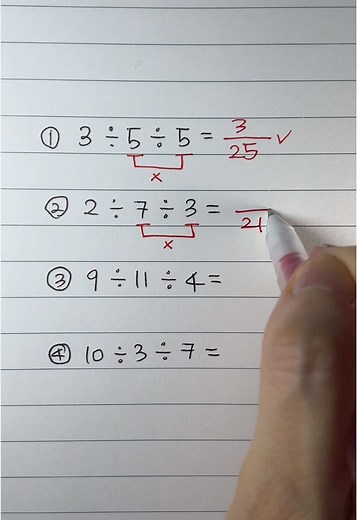 ① 3 ÷ 5 ÷ 5 = 3/25 ✓
x
② 2 ÷ 7 ÷ 3 = /21
x
③ 9 ÷ 11 ÷ 4 =
④ 10 ÷ 3 ÷ 7 =